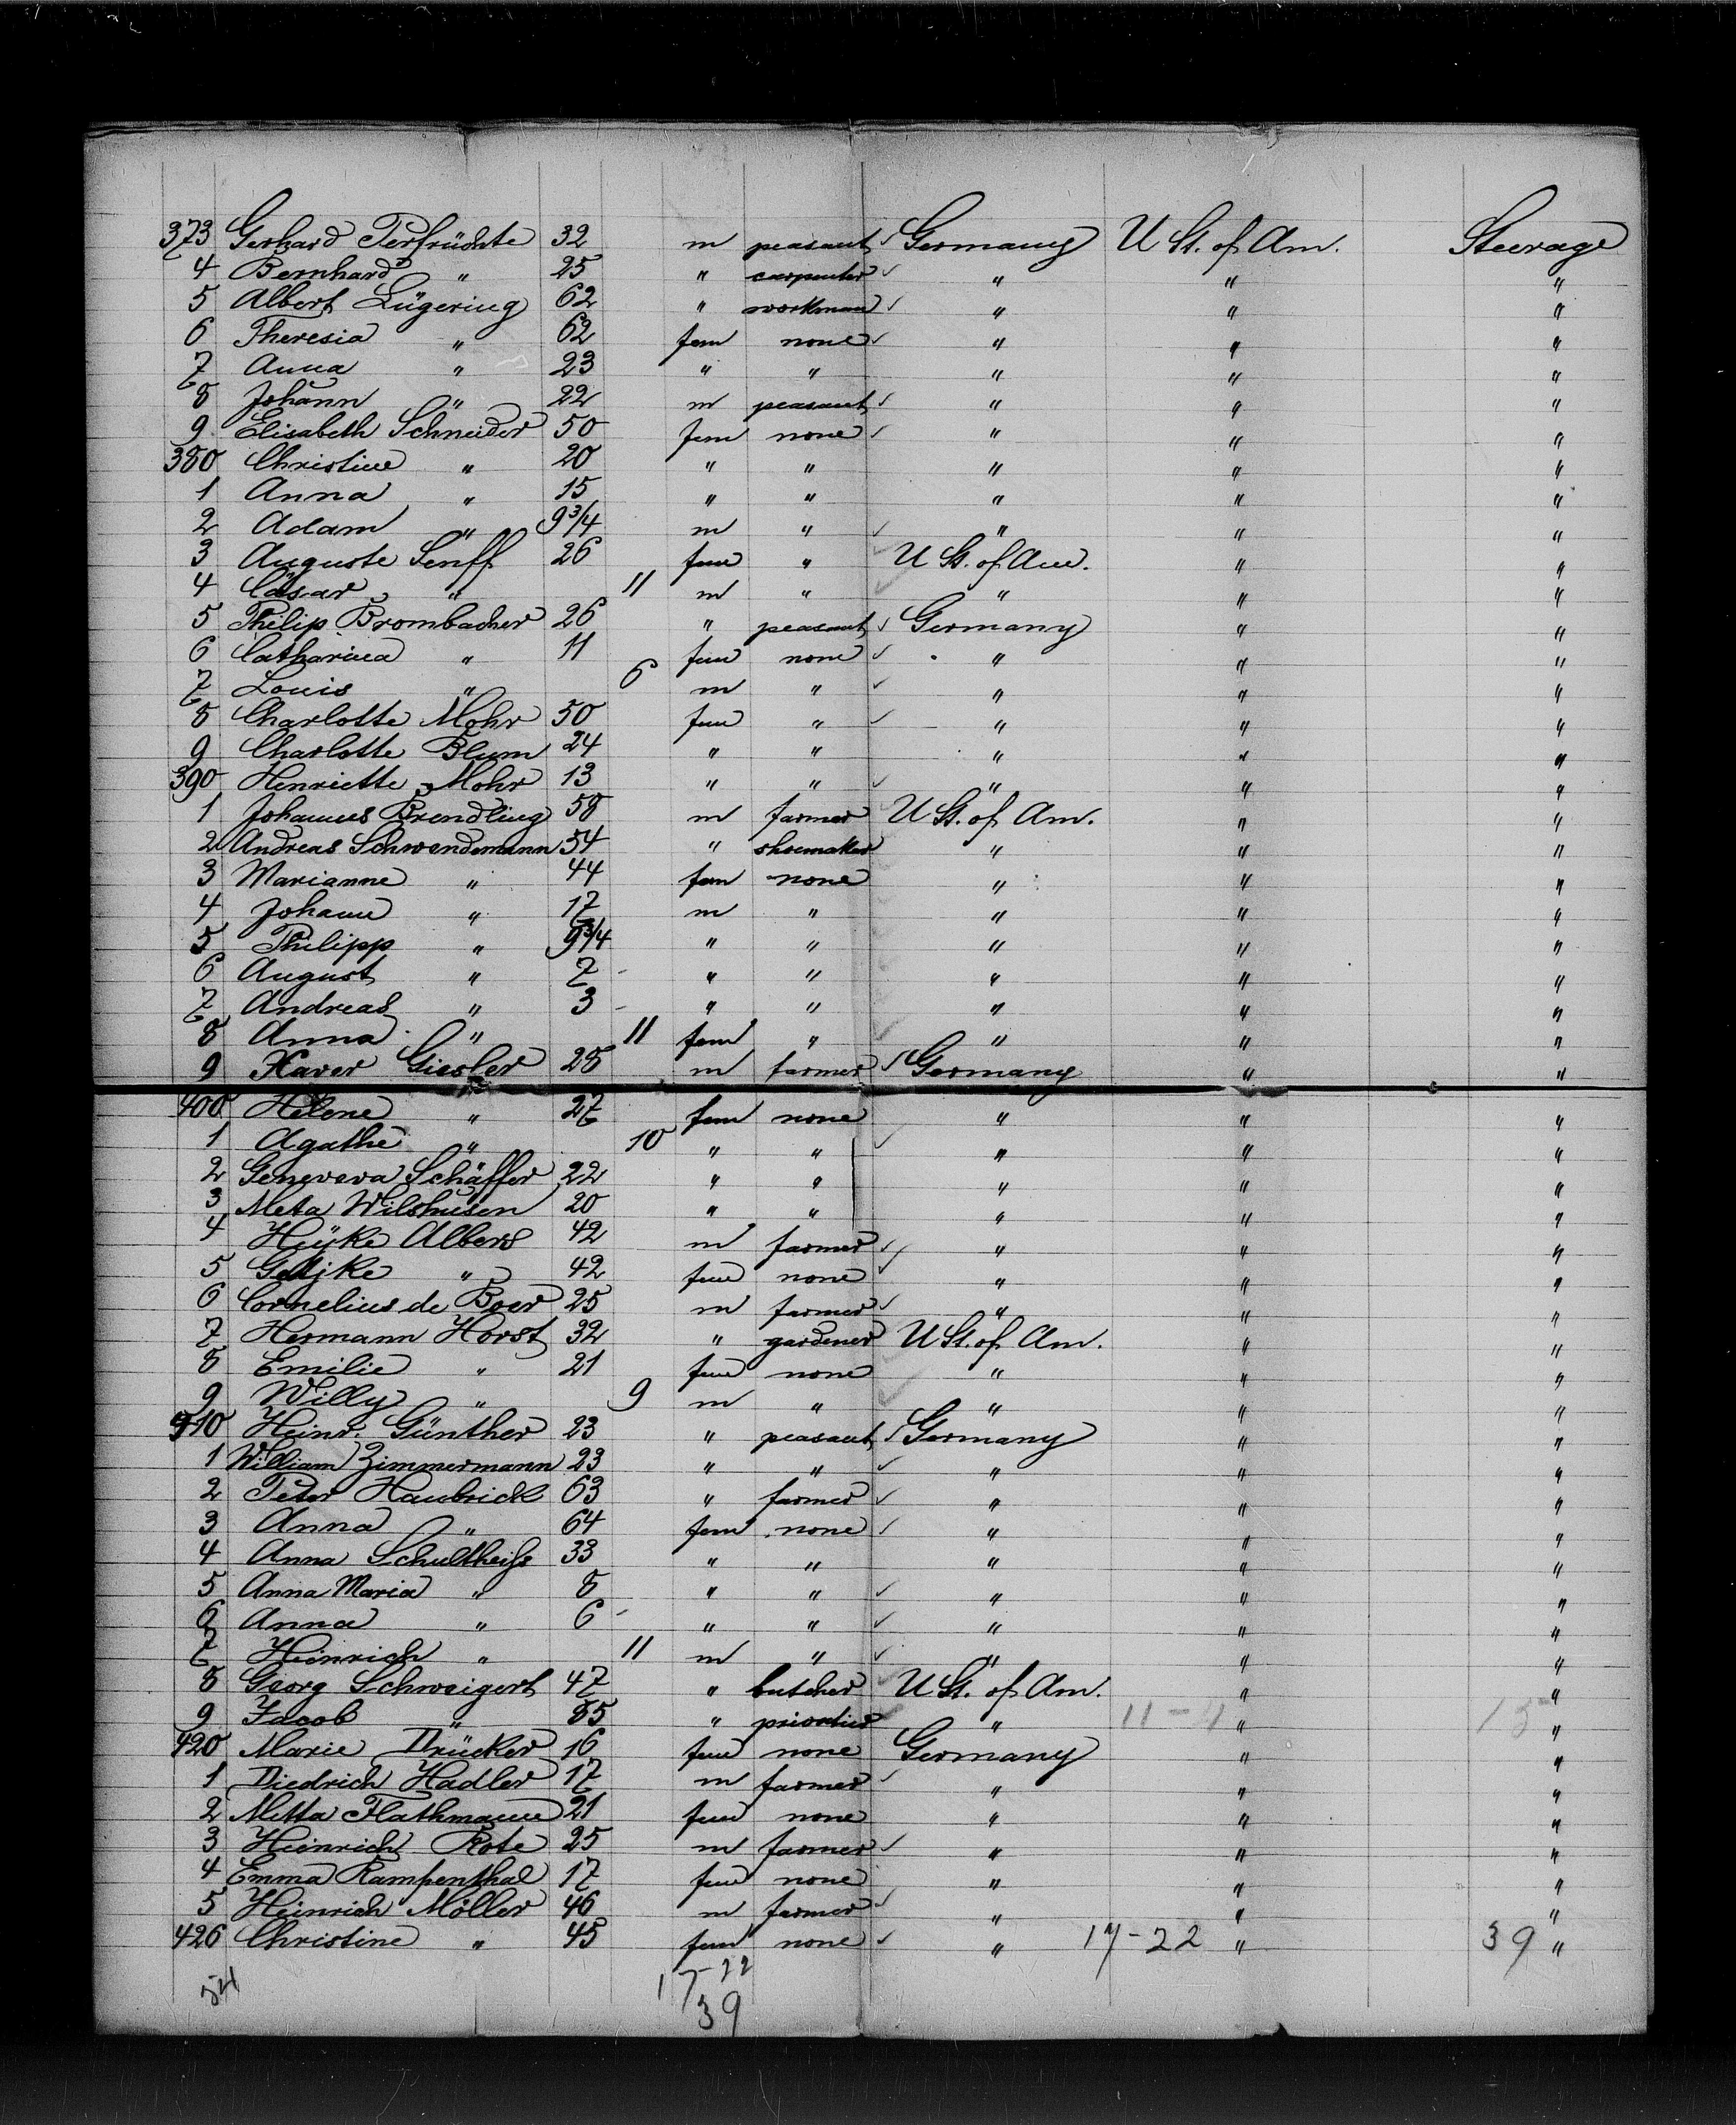 373 Gerhard Terfrüchte 32 m peasant ✓ Germany U St. of Am. Steerage
4 Bernhard " 25 " carpenter ✓ " " "
5 Albert Lügering 62 " workman ✓ " " "
6 Theresia " 62 fem none ✓ " " "
7 Anna " 23 " " " " "
8 Johann " 22 m peasant ✓ " " "
9 Elisabeth Schneider 50 fem none ✓ " " "
380 Christine " 20 " " " " "
1 Anna " 15 " " " " "
2 Adam " 9 3/4 m " ✓ " " "
3 Auguste Senff 26 fem " ✓ U St. of Am. " "
4 Cäsar " 11 m " " " "
5 Philip Brombacher 26 " peasant ✓ Germany " "
6 Catharina " 11 fem none ✓ " " "
7 Louis " 6 m " ✓ " " "
8 Charlotte Mohr 50 fem " ✓ " " "
9 Charlotte Blum 24 " " " " "
390 Henriette Mohr 13 " " ✓ " " "
1 Johannes Brendling 58 m farmer U St. of Am. " "
2 Andreas Schwendemann 54 " shoemaker " " "
3 Marianne " 44 fem none " " "
4 Johann " 17 m " " " "
5 Philipp " 9 3/4 " " " " "
6 August " 7 - " " " " "
7 Andreas " 3 - " " " " "
8 Anna " 11 fem " " " "
9 Xaver Giesler 28 m farmer ✓ Germany " "
400 Helene " 27 fem none " " "
1 Agathe " 10 " " ✓ " " "
2 Geneveva Schäffer 22 " " " " "
3 Meta Wilshusen 20 " " " " "
4 Heyke Albers 42 m farmer ✓ " " "
5 " 42 fem none ✓ " " "
6 Cornelius de Boer 25 m farmer ✓ " " "
7 Hermann Horst 32 " gardener U St. of Am. " "
8 Emilie " 21 fem none " " "
9 Willy " 9 m " ✓ " " "
410 Heinr. Günther 23 " peasant ✓ Germany " "
1 William Zimmermann 23 " " ✓ " " "
2 Peter Haubrick 63 " farmer ✓ " " "
3 Anna " 64 fem none ✓ " " "
4 Anna Schultheiß 33 " " " " "
5 Anna Maria " 8 " " ✓ " " "
6 Anna " 6 - " " ✓ " " "
7 Heinrich " 11 m " ✓ " " "
8 Georg Schweigert 47 " butcher U St. of Am. " "
9 Jacob " 55 " " 11-4 " 15 "
420 Marie Drücker 16 fem none Germany " "
1 Diedrich Hadler 17 m farmer ✓ " " "
2 Metta Flathmann 21 fem none " " "
3 Heinrich Rote 25 m farmer ✓ " " "
4 Emma Rampenthal 17 fem none " " "
5 Heinrich Möller 46 m farmer ✓ " " "
426 Christine " 45 fem none ✓ " 17-22 " 39 "
54 17-22
39